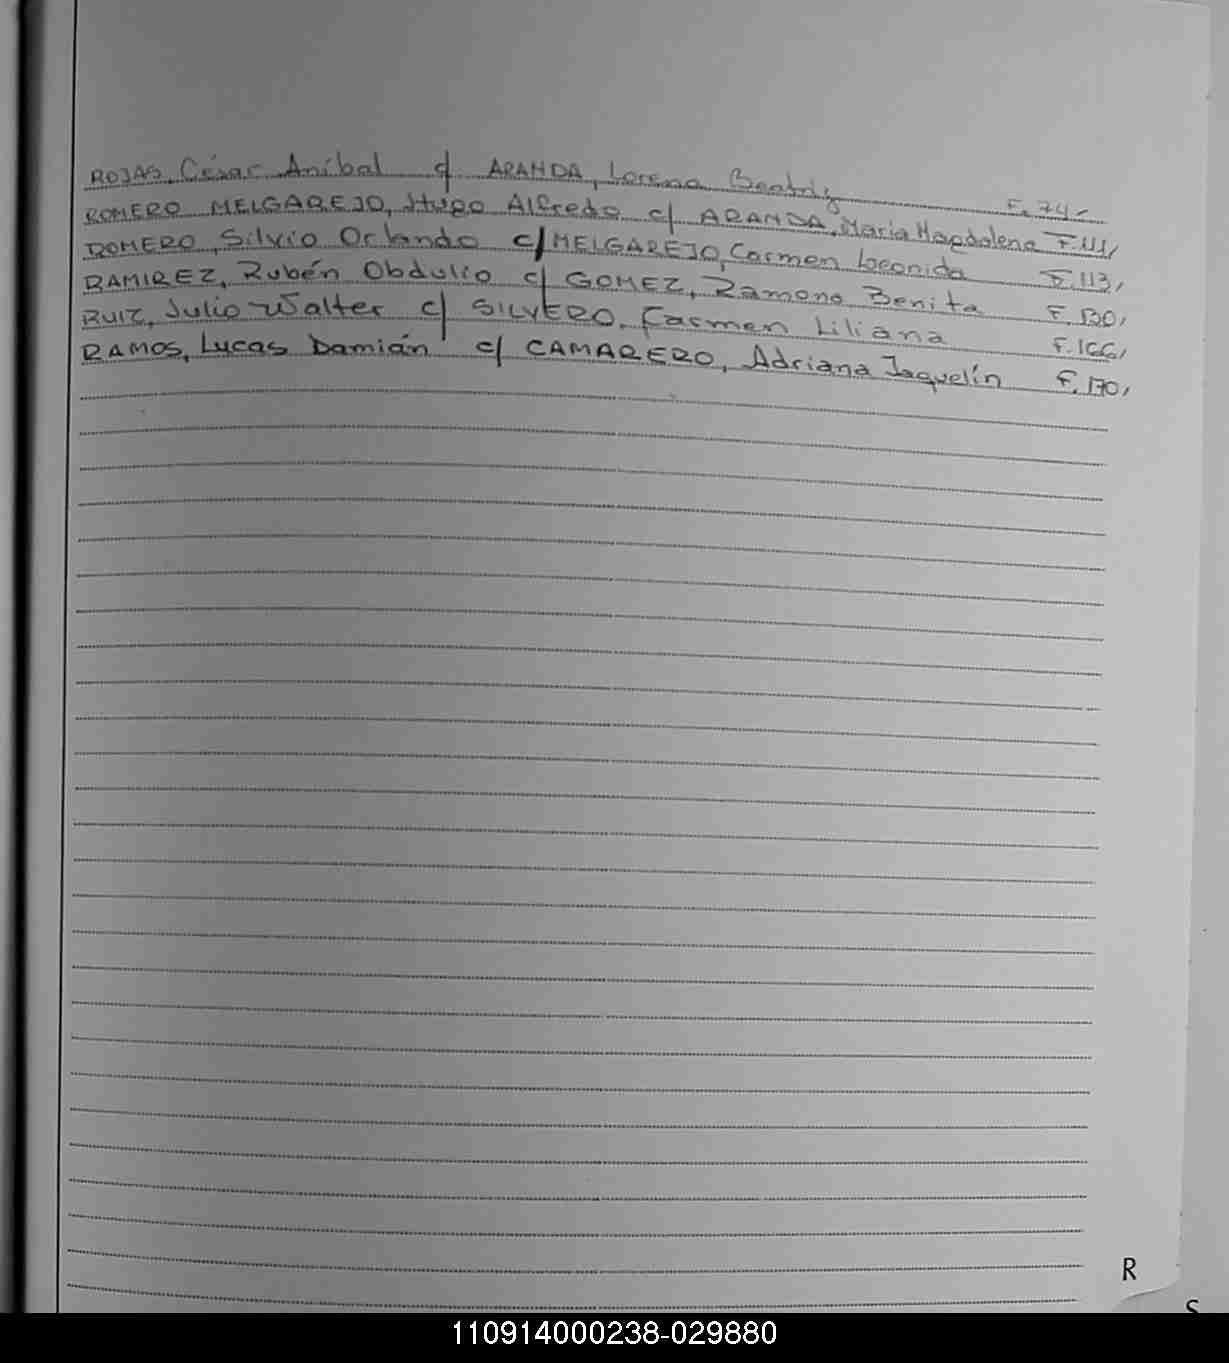 ROJAS, César Aníbal c/ ARANDA, Lorena Beatriz F. 74,
ROMERO MELGAREJO, Hugo Alfredo c/ ARANDA, María Magdalena F. 111,
ROMERO, Silvio Orlando c/ MELGAREJO, Carmen Leonida F. 113,
RAMIREZ, Rubén Obdulio c/ GOMEZ, Ramona Benita F. 130,
RUIZ, Julio Walter c/ SILVERO, Carmen Liliana F. 166,
RAMOS, Lucas Damián c/ CAMARERO, Adriana Jaquelín F. 170,
R
S
110914000238-029880